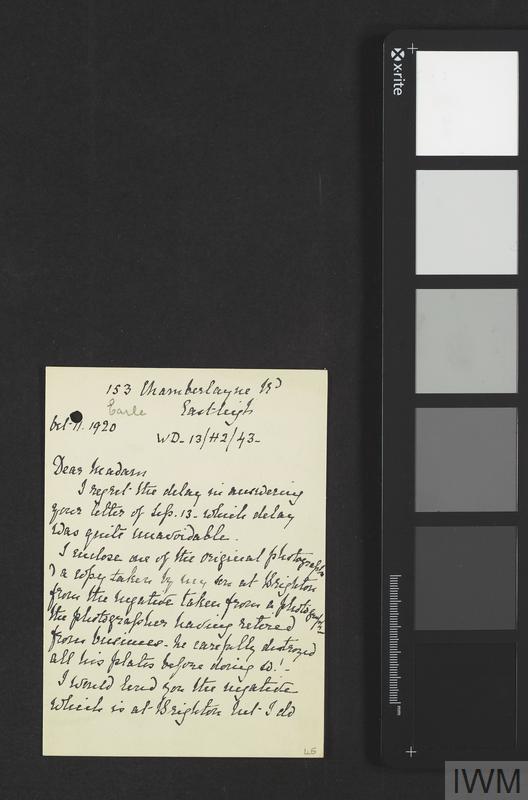 153 Chamberlayne Rd
Earle Eastleigh
Oct. 11. 1920
WD-13/H2/43-
Dear Madam
I regret the delay in answering
your letter of Sep. 13- which delay
was quite unavoidable.
I enclose one of the original photographs
& a copy taken by my son at Brighton
from the negative taken from a photograph
the photographer having retired
from business- he carefully destroyed
all his plates before doing so! -
I would lend you the negative
which is at Brighton but I do
46
x-rite
mm
IWM